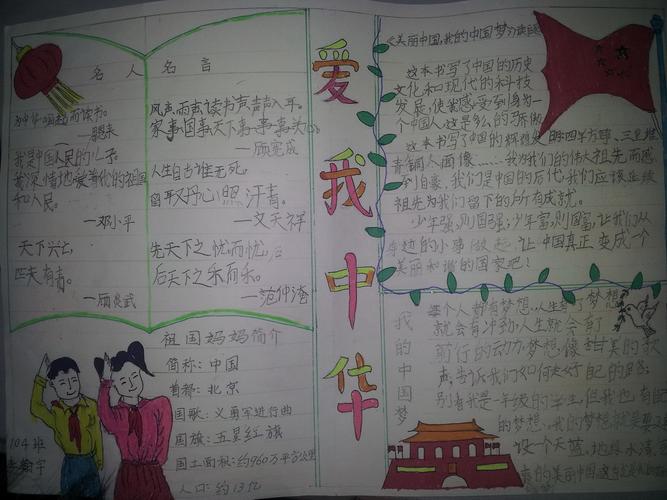 名人名言
为中华崛起而读书。
—周恩来
我是中国人民的儿子。
我深情地爱着我的祖国
和人民。
—邓小平
天下兴亡
匹夫有责。
—顾炎武
风声雨声读书声声声入耳。
家事国事天下事事事关心。
—顾宪成
人生自古谁无死,
留取丹心照汗青。
—文天祥
先天下之忧而忧,
后天下之乐而乐。
—范仲淹
爱我中华
《美丽中国,我的中国梦》读后
这本书写了中国的历史
文化和现代的科技
发展,使我感受到身为一
个中国人这是多么的骄傲
这本书写了中国的辉煌发
青铜人面像……我为我们的伟大祖先而感
到自豪,我们是中国的后代,我们应该正统
祖先为我们留下的所有成就。
少年强,则国强;少年富,则国富,让我们从
身边的小事做起,让中国真正变成一个
美丽和谐的国家吧!
祖国妈妈简介
简称:中国
首都:北京
国歌:义勇军进行曲
国旗:五星红旗
国土面积:约960万平方公里
人口:约13亿
104班
我的中国梦
每个人都有梦想,人生有了梦想
就会有冲动,人生就会有
前行的动力,梦想像甜美的歌
声,告诉我们如何走好自己的路;
别看我是一年级的学生,但我也有自己
的梦想,我的梦想就是要建
设一个天蓝,地绿,水清
的美丽中国